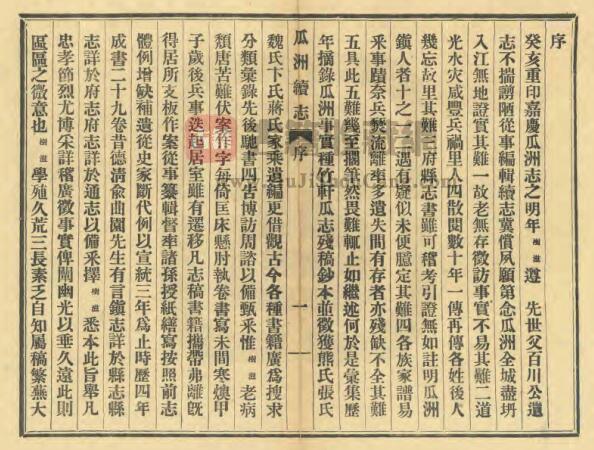 序
癸亥重印嘉慶瓜洲志之明年樹滋遵 先世父百川公遺
志不揣謭陋從事編輯續志冀償夙願第念瓜洲全城盡坍
入江無地證實其難一故老無存徵訪事實不易其難二道
光水灾咸豐兵禍里人四散閱數十年一傳再傳各姓後人
幾忘故里其難三府縣志書雖可稽考引證無如註明瓜洲
鎭人者十之一二遇有疑似未便臆定其難四各族家譜易
釆事蹟奈兵燹流離率多遺失間有存者亦殘缺不全其難
五具此五難幾至擱筆然畏難輒止如繼述何於是彙集歷
年摘錄瓜洲事實種竹軒瓜志殘稿鈔本並徵獲熊氏張氏
瓜洲續志 序 一
魏氏卞氏蔣氏家乘遺編更借觀古今各種書籍廣爲搜求
分類彙錄先後馳書四古博訪周諮以備甄釆惟樹滋老病
頹唐苦難伏案作字每倚匡床懸肘執卷書寫未間寒燠甲
子歲後兵事迭起居室雖有遷移凡志稿書籍攜帶弗離旣
得居所支板作案從事纂輯督率諸孫授紙繕寫按照前志
體例增缺補遺從史家斷代例以宣統三年爲止時歷四年
成書二十九卷昔德清俞曲園先生有言鎭志詳於縣志縣
志詳於府志府志詳於通志以備釆擇樹滋悉本此旨舉凡
忠孝節烈尤博釆詳稽廣徵事實俾闡幽光以垂久遠此則
區區之微意也樹滋學殖久荒三長素乏自知屬稿繁蕪大